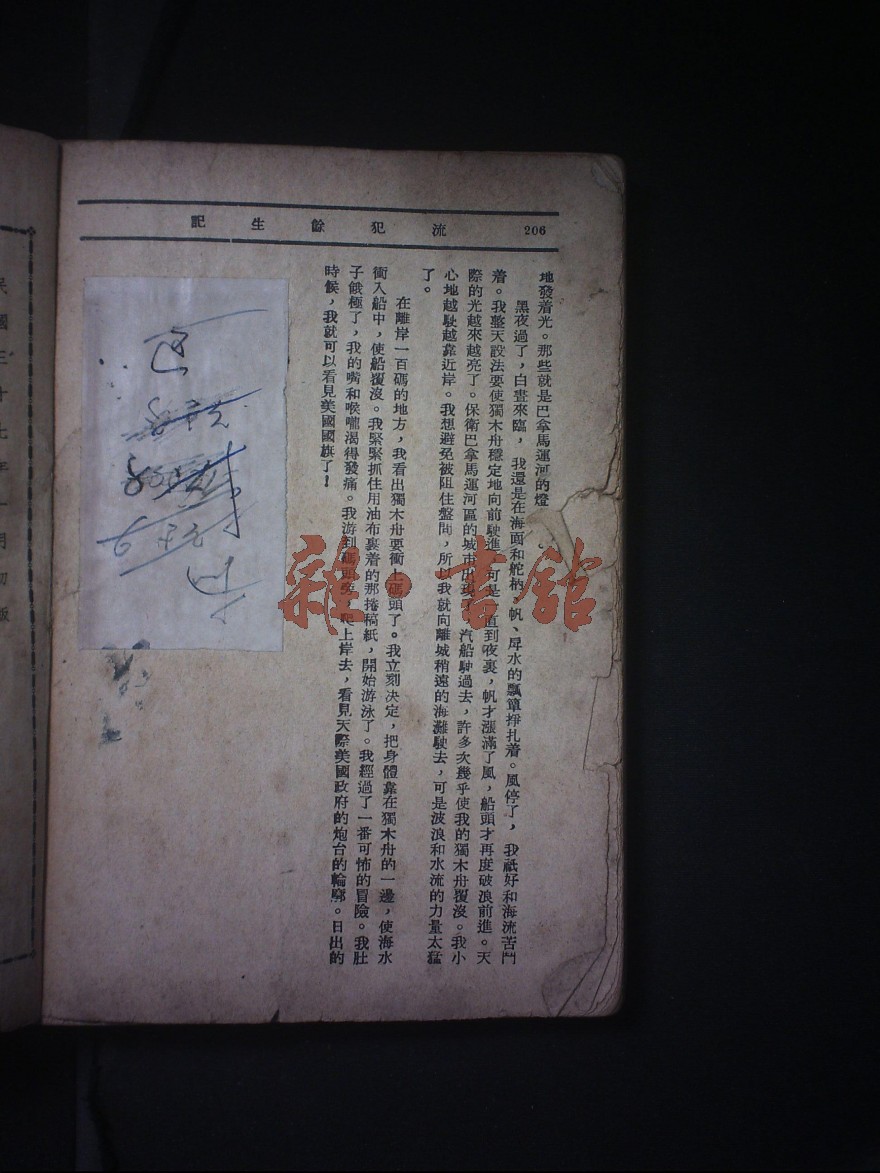 流犯餘生記
206
地發着光。那些就是巴拿馬運河的燈
黑夜過了，白晝來臨，我還是在海面和舵柄、帆、戽水的瓢簞掙扎着。風停了，我祇好和海流苦鬥
着。我整天設法要使獨木舟穩定地向前駛進，可是一直到夜裏，帆才漲滿了風，船頭才再度破浪前進。天
際的光越來越亮了。保衛巴拿馬運河區的城市出現了。汽船駛過去，許多次幾乎使我的獨木舟覆沒。我小
心地越駛越靠近岸。我想避免被阻住盤問，所以我就向離城稍遠的海灘駛去，可是波浪和水流的力量太猛
了。
在離岸一百碼的地方，我看出獨木舟要衝上碼頭了。我立刻決定，把身體靠在獨木舟的一邊，使海水
衝入船中，使船覆沒。我緊緊抓住用油布裹着的那捲稿紙，開始游泳了。我經過了一番可怖的冒險。我肚
子餓極了，我的嘴和喉嚨渴得發痛。我游到碼頭旁，爬上岸去，看見天際美國政府的炮台的輪廓。日出的
時候，我就可以看見美國國旗了！
雜·書館
民國三十七年一月初版